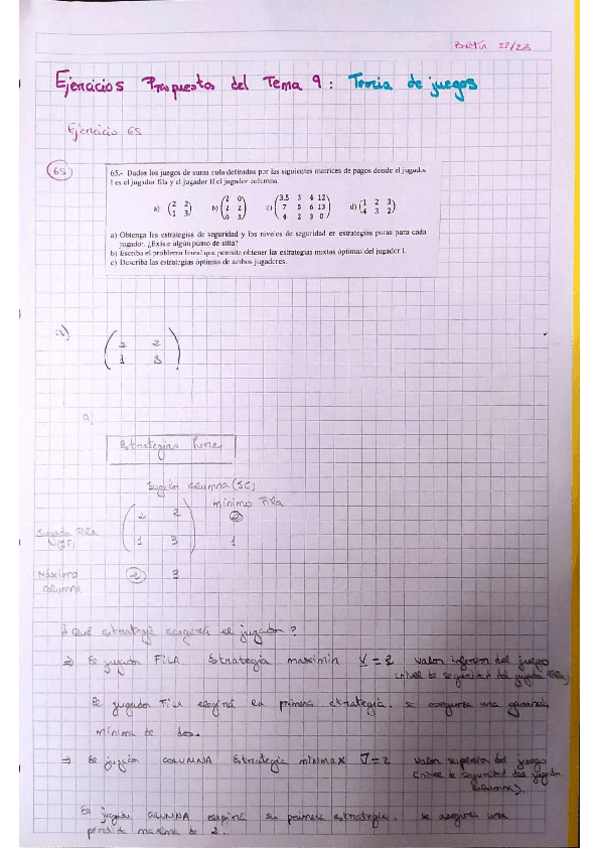 Boletín 22/23
Ejercicios Propuestos del Tema 9: Teoría de juegos
Ejercicio 65
65
65.- Dados los juegos de suma nula definidos por las siguientes matrices de pagos donde el jugador
I es el jugador fila y el jugador II el jugador columna.
a) (2 2 / 1 3) b) (2 0 / 2 2 / 0 3) c) (3.5 3 4 12 / 7 5 6 13 / 4 2 3 0) d) (1 2 3 / 4 3 2)
a) Obtenga las estrategias de seguridad y los niveles de seguridad en estrategias puras para cada
jugador. ¿Existe algún punto de silla?
b) Escriba el problema lineal que permite obtener las estrategias mixtas óptimas del jugador I.
c) Describa las estrategias óptimas de ambos jugadores.
a) 2 2
1 3
a)
Estrategias Puras
Jugador columna (JC)
mínimo Fila
2 2 2
Jugador Fila
(JF) 1 3 1
Máximo 2 3
columna
¿Qué estrategia escogerá el jugador?
⇒ El jugador FILA Estrategia maximin V = 2 valor inferior del juego
(nivel de seguridad del jugador Fila)
El jugador FILA escogirá la primera estrategia. Se asegura una ganancia
mínima de dos.
⇒ El jugador COLUMNA Estrategia minimax V = 2 valor superior del juego
(nivel de seguridad del jugador
columna).
El jugador COLUMNA escogirá su primera estrategia. Se asegura una
pérdida máxima de 2.